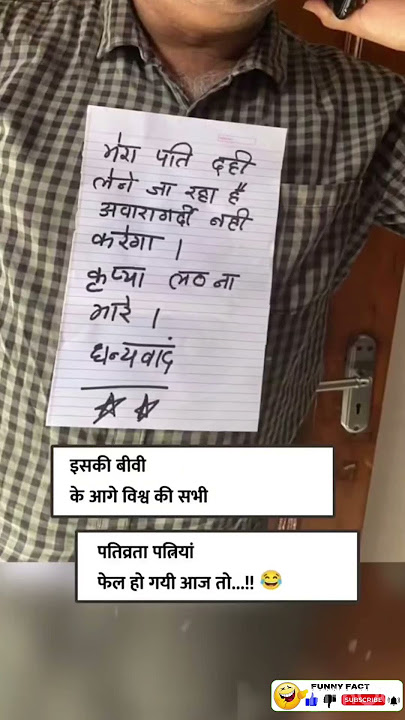 मेरा पति दही
लेने जा रहा है
अवारागर्दी नही
करेगा ।
कृप्या लठ ना
मारे ।
धन्यवाद
इसकी बीवी
के आगे विश्व की सभी
पतिव्रता पत्नियां
फेल हो गयी आज तो...!! 😂
FUNNY FACT
SUBSCRIBE